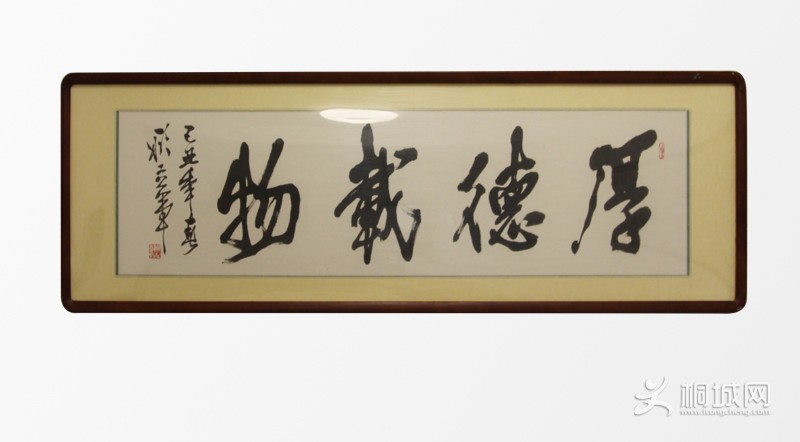 厚德載物
己丑年春
桐城网
www.itongcheng.com